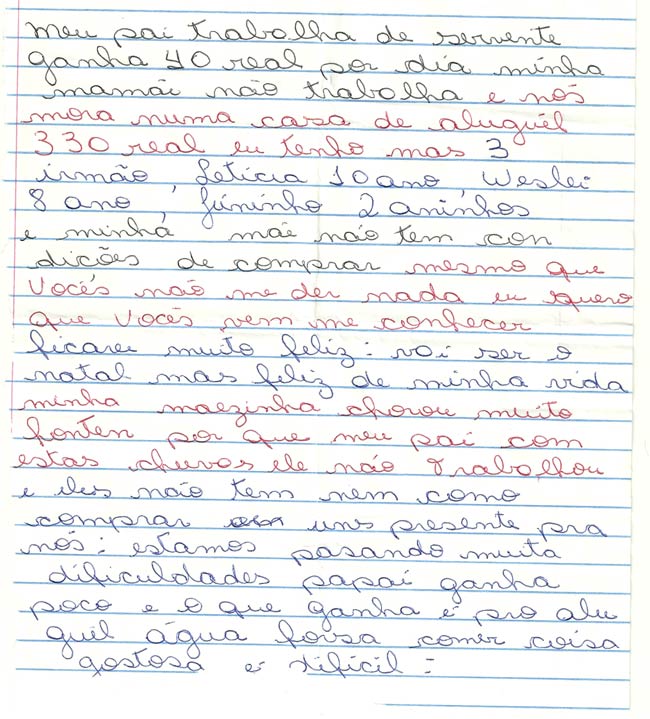 meu pai trabalha de servente
ganha 40 real por dia minha
mamãi não trabalha e nós
mora numa casa de aluguél
330 real eu tenho mas 3
irmão, Letícia 10 ano, Weslei
8 ano, júninho 2 aninhos
e minhá mãe não tem con
dicões de comprar mesmo que
vocês não me der nada eu quero
que vocês vem me conhecer
ficarei muito feliz: vai ser o
natal mas feliz de minha vida
minha maezinha chorou muito
honten por que meu pai com
estas chuvas ele não Trabalhou
e eles não tem nem como
comprar uns presente pra
nós: estamos pasando muita
dificuldades papai ganha
poco e o que ganha é pro alu
guél água forsa comer coisa
gostosa é difícil: